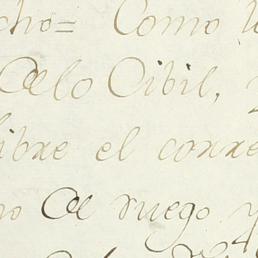 cho= Como
De lo Cibil,
libre el corre
no De ruego y